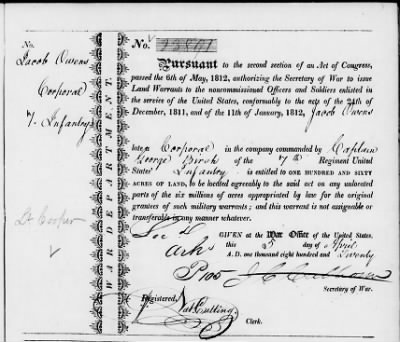 No.
Jacob Owens
Corporal
7- Infantry
Lt Cooper
WAR DEPARTMENT.
No.
PURSUANT to the second section of an Act of Congress,
passed the 6th of May, 1812, authorizing the Secretary of War to issue
Land Warrants to the noncommissioned Officers and Soldiers enlisted in
the service of the United States, conformably to the acts of the 24th of
December, 1811, and of the 11th of January, 1812, Jacob Owens
late a Corporal in the company commanded by Captain
George Birch of the 7th Regiment United
States' Infantry is entitled to ONE HUNDRED AND SIXTY
ACRES OF LAND, to be located agreeably to the said act on any unlocated
parts of the six millions of acres appropriated by law for the original
grantees of such military warrants; and this warrant is not assignable or
transferable in any manner whatever.
GIVEN at the War Office of the United States.
this 5 day of April
A. D. one thousand eight hundred and Twenty
Arks
P 105 J C Calhoun
Secretary of War.
Registered,
Nat Cutting
Clerk.